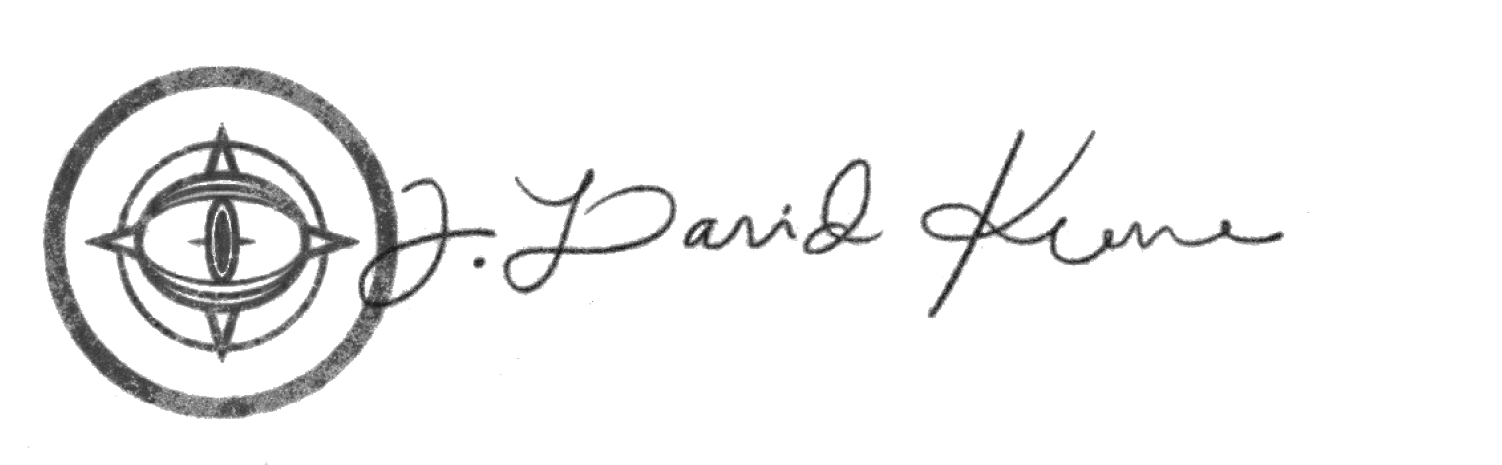 J. David Keene